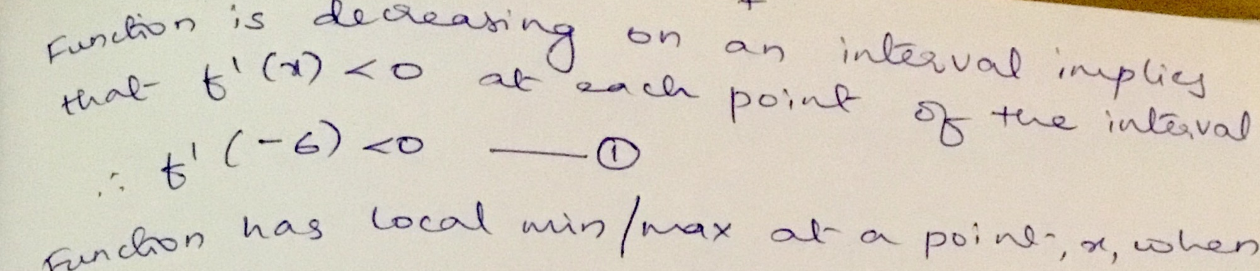 Function is decreasing on an interval implies
that f'(x) < 0 at each point of the interval
∴ f'(-6) < 0 —— ①
Function has local min/max at a point, x, when